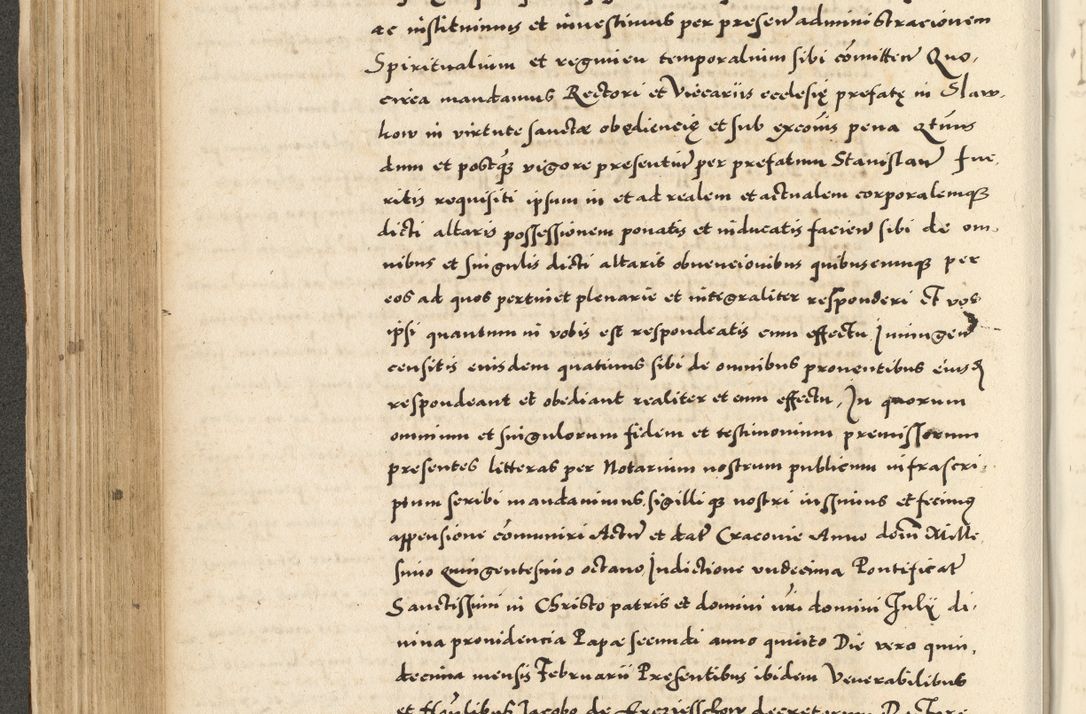 ac instituimus et investimus per presen̄ administracionem
Spiritualium et regimen temporalium sibi cōmitten̄ Quo-
circa mandamus Rectori et Viccariis ecclesię prefatę in Slaw-
kow in virtute sanctæ obediencię et sub excoīs pena Qtūs
dum et postq̄ vigore presentiū per prefatum Stanislaū fue-
ritis requisiti ipsum in et ad realem et actualem corporalemq̄
dicti altaris possessionem ponatis et inducatis facien̄ sibi de om-
nibus et singulis dicti altaris obuencionibus quibuscunq̄ per
eos ad quos pertinet plenarie et integraliter responderi Et vos
ipsi quantum in vobis est respondeatis cum effectu Iniungen̄
censitis eiusdem quatinus sibi de omnibus prouentibus eiusd
respondeant et obediant realiter et cum effectu, In quorum
omnium et singulorum fidem et testimonium premissorum
presentes litteras per Notarium nostrum publicum infrascri-
ptum scribi mandauimus, sigilli q̄ nostri iussimus et fecimꝰ
appensione cōmuniri Actū et dat̄ Cracovie Anno domī Mille
simo Quingentesimo octauo Indictione vndecima Pontificat̄
Sanctissimi in Christo patris et domini nr̄i domini Iulij di-
uina prouidencia Papæ secundi anno quinto Die vero quin-
decima mensis Februarii Presentibus ibidem Venerabilibus
et Jacobo de decretorum Doctore